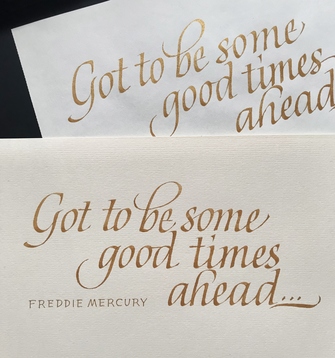 Got to be some
good times
ahead
Got to be some
good times
ahead...
FREDDIE MERCURY